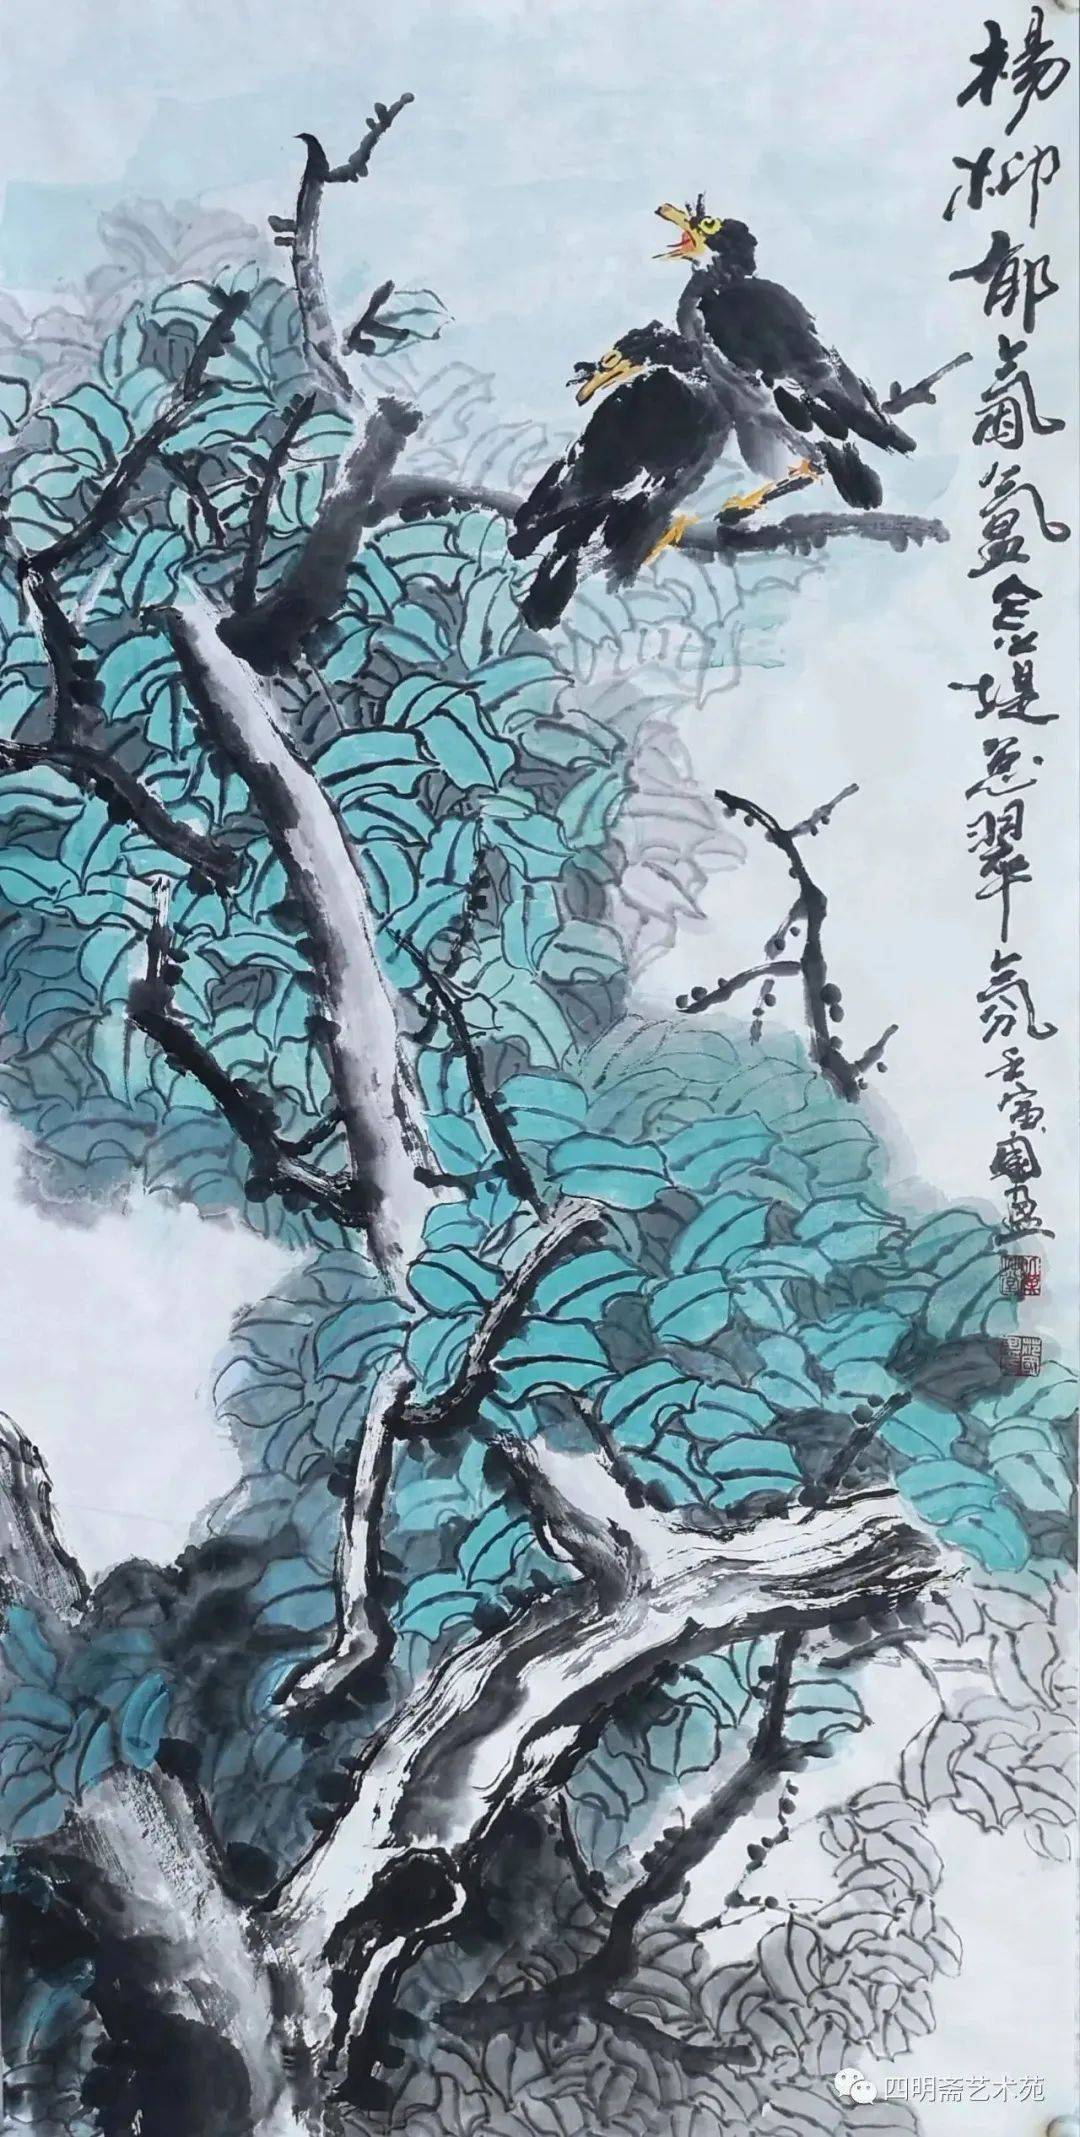 杨柳郁氤氲金堤总翠氛壬寅國盈
四明斋艺术苑